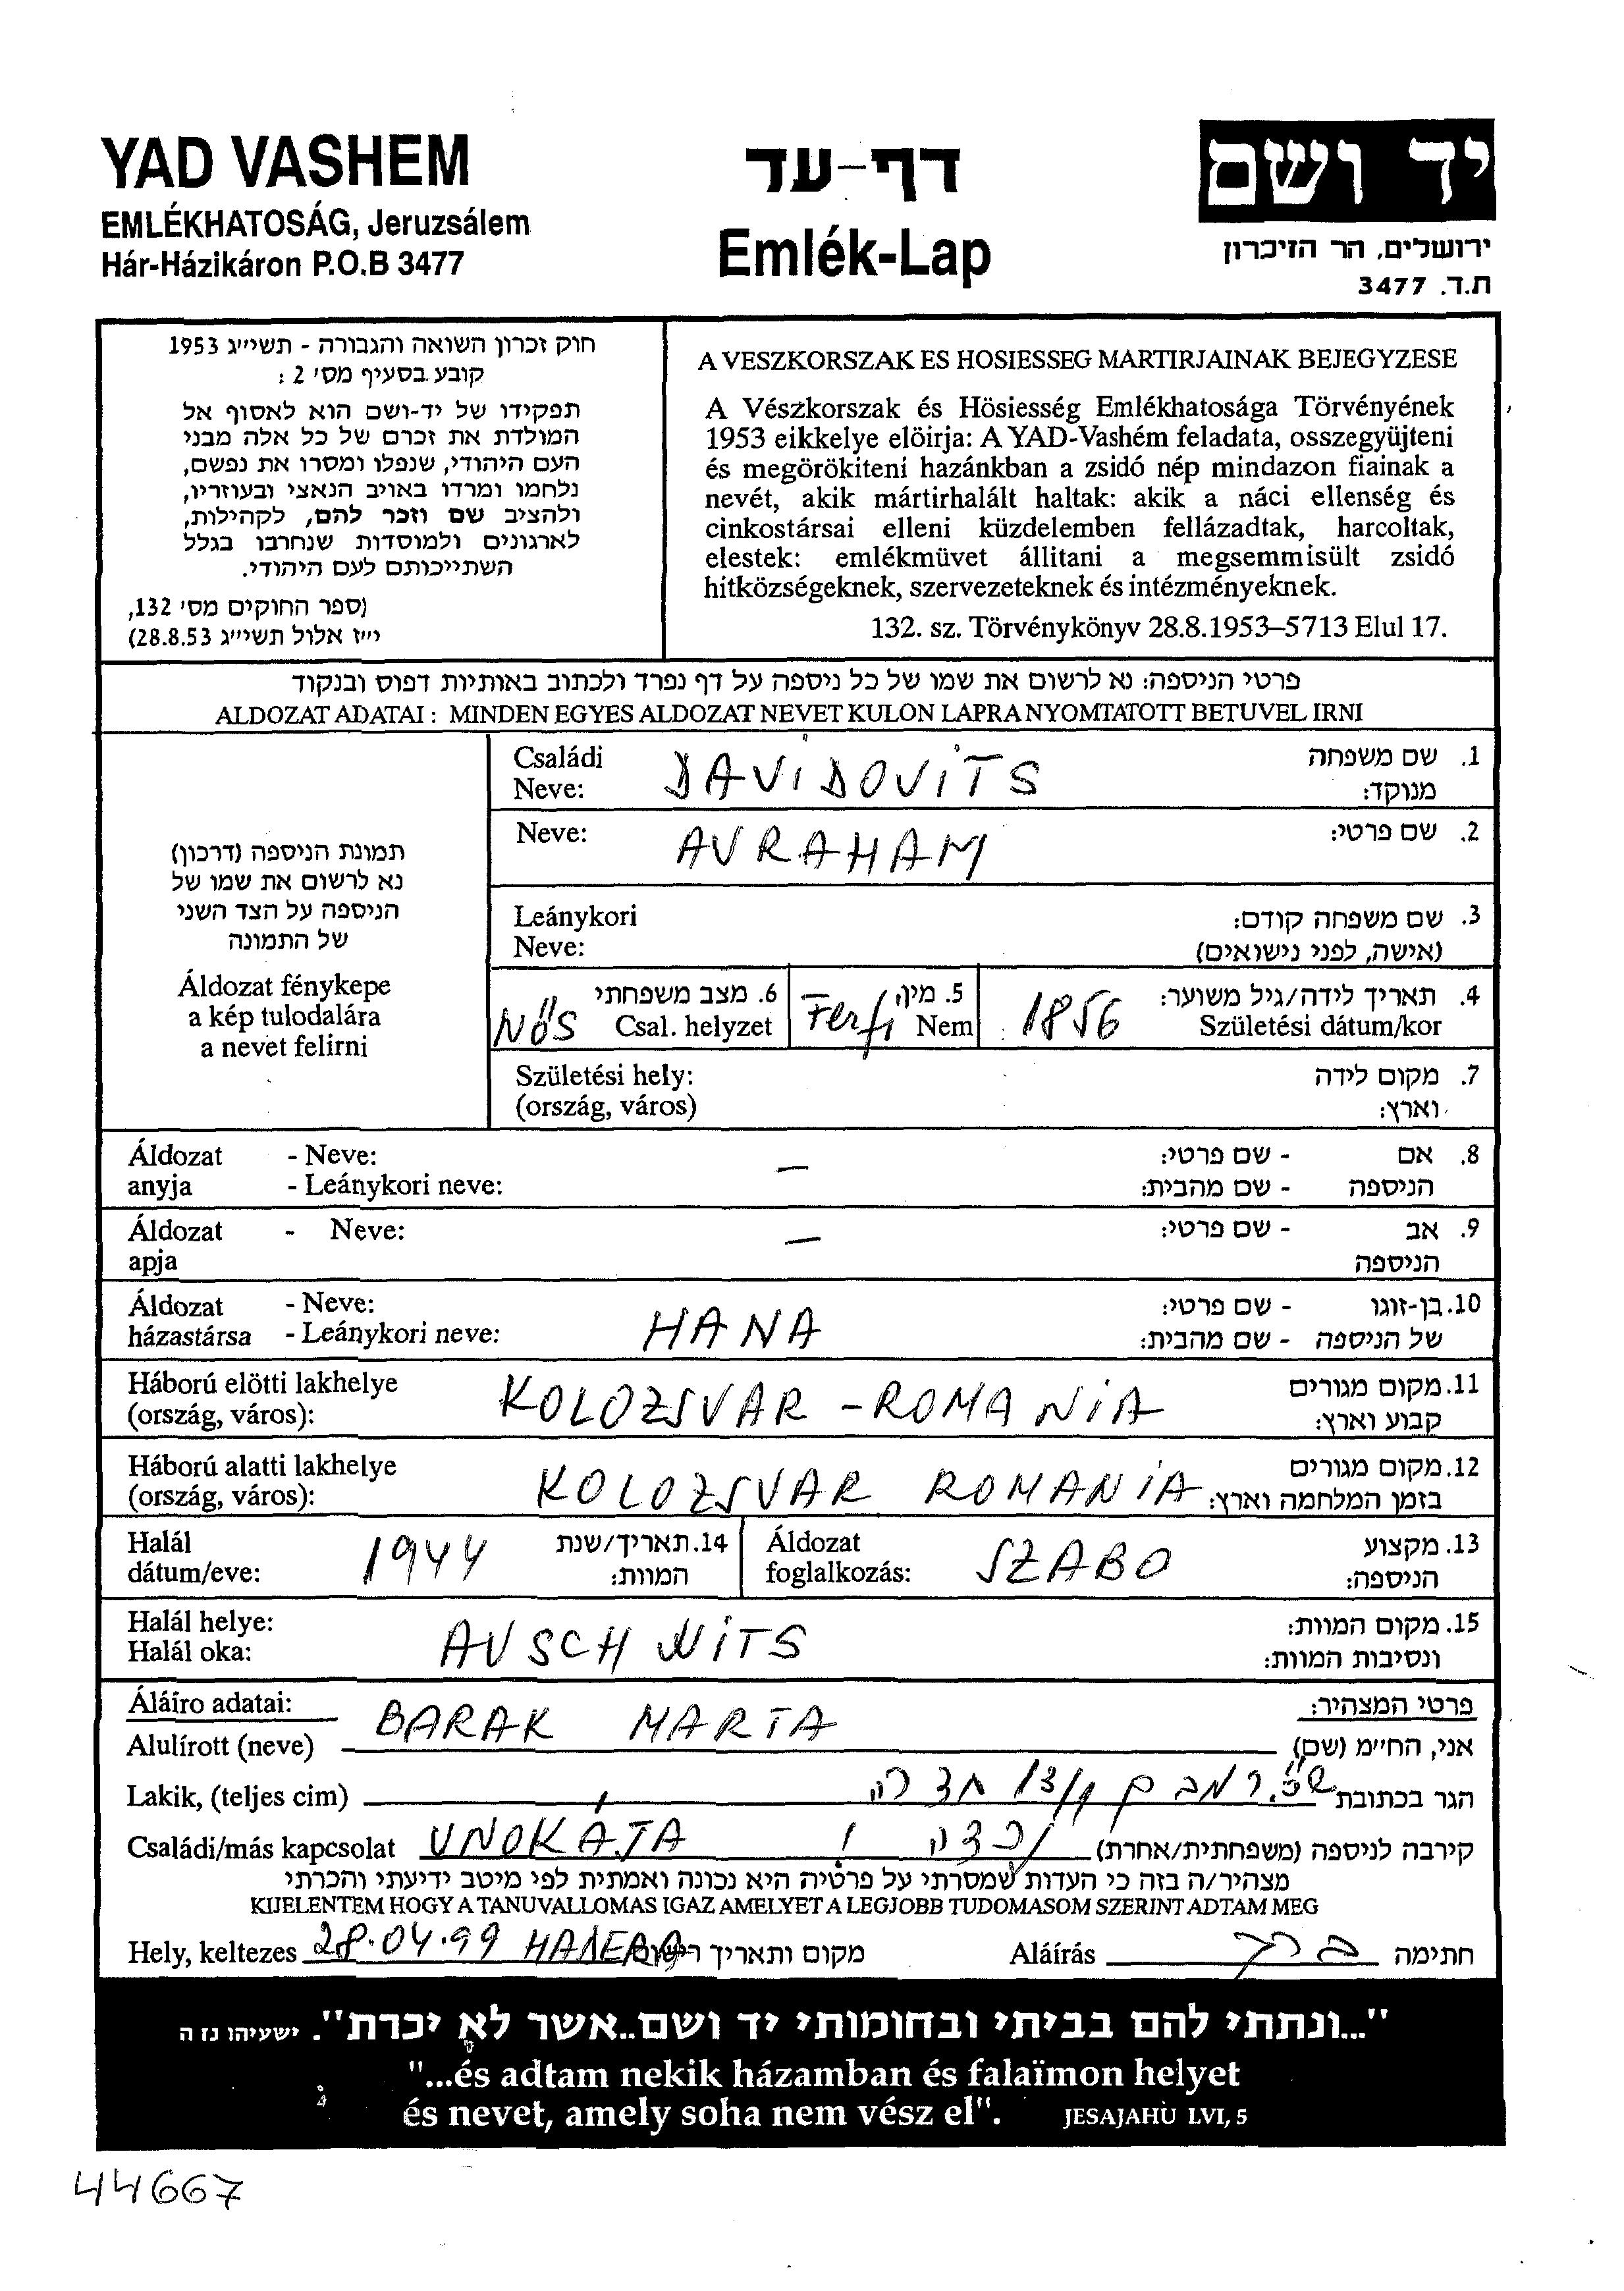 YAD VASHEM
EMLÉKHATOSÁG, Jeruzsálem
Hár-Házikáron P.O.B 3477
דף-עד
Emlék-Lap
יד ושם
ירושלים, הר הזיכרון
ת.ד. 3477
חוק זכרון השואה והגבורה - תשי״ג 1953
קובע בסעיף מס׳ 2 :
תפקידו של יד-ושם הוא לאסוף אל
המולדת את זכרם של כל אלה מבני
העם היהודי, שנפלו ומסרו את נפשם,
נלחמו ומרדו באויב הנאצי ובעוזריו,
ולהציב שם וזכר להם, לקהילות,
לארגונים ולמוסדות שנחרבו בגלל
השתייכותם לעם היהודי.
(ספר החוקים מס׳ 132,
י״ז אלול תשי״ג 28.8.53)
A VESZKORSZAK ES HOSIESSEG MARTIRJAINAK BEJEGYZESE
A Vészkorszak és Hösiesség Emlékhatosága Törvényének
1953 eikkelye elöirja: A YAD-Vashém feladata, osszegyüjteni
és megörökiteni hazánkban a zsidó nép mindazon fiainak a
nevét, akik mártirhalált haltak: akik a náci ellenség és
cinkostársai elleni küzdelemben fellázadtak, harcoltak,
elestek: emlékmüvet állitani a megsemmisült zsidó
hitközségeknek, szervezeteknek és intézményeknek.
132. sz. Törvénykönyv 28.8.1953–5713 Elul 17.
פרטי הניספה: נא לרשום את שמו של כל ניספה על דף נפרד ולכתוב באותיות דפוס ובנקוד
ALDOZAT ADATAI : MINDEN EGYES ALDOZAT NEVET KULON LAPRA NYOMTATOTT BETUVEL IRNI
תמונת הניספה (דרכון)
נא לרשום את שמו של
הניספה על הצד השני
של התמונה
Áldozat fényképe
a kép tulodalára
a nevet felirni
Családi
Neve:
DAVIDOVITS
1. שם משפחה
מנוקד:
Neve:
AVRAHAM
2. שם פרטי:
Leánykori
Neve:
3. שם משפחה קודם:
(אישה, לפני נישואים)
NŐS
6. מצב משפחתי
Csal. helyzet
Ferfi
5. מין
Nem
1856
4. תאריך לידה/גיל משוער:
Születési dátum/kor
Születési hely:
(ország, város)
7. מקום לידה
וארץ:
Áldozat - Neve:
anyja - Leánykori neve:
—
8. אם - שם פרטי:
הניספה - שם מהבית:
Áldozat - Neve:
apja
—
9. אב - שם פרטי:
הניספה
Áldozat - Neve:
házastársa - Leánykori neve:
HANA
10. בן-זוגו - שם פרטי:
של הניספה - שם מהבית:
Háború elötti lakhelye
(ország, város):
KOLOZSVAR - ROMANIA
11. מקום מגורים
קבוע וארץ:
Háború alatti lakhelye
(ország, város):
KOLOZSVAR ROMANIA
12. מקום מגורים
בזמן המלחמה וארץ:
Halál
dátum/eve:
1944
14. תאריך/שנת
המוות:
Áldozat
foglalkozás:
SZABO
13. מקצוע
הניספה:
Halál helye:
Halál oka:
AUSCHWITS
15. מקום המוות:
ונסיבות המוות:
Áláíro adatai:
פרטי המצהיר:
Alulírott (neve) BARAK MARTA אני, החי״מ (שם)
Lakik, (teljes cim) רמבם 13/1 חדרה הגר בכתובת
Családi/más kapcsolat UNOKAJA נכדה קירבה לניספה (משפחתית/אחרת)
מצהיר/ה בזה כי העדות שמסרתי על פרטיה היא נכונה ואמתית לפי מיטב ידיעתי והכרתי
KIJELENTEM HOGY A TANUVALLOMAS IGAZ AMELYET A LEGJOBB TUDOMASOM SZERINT ADTAM MEG
Hely, keltezes 28.04.99 מקום ותאריך רישום Aláírás ברק חתימה
"...ונתתי להם בביתי ובחומותי יד ושם..אשר לא יכרת". ישעיהו נז ה
"...és adtam nekik házamban és falaïmon helyet
és nevet, amely soha nem vész el". JESAJAHU LVI, 5
44667